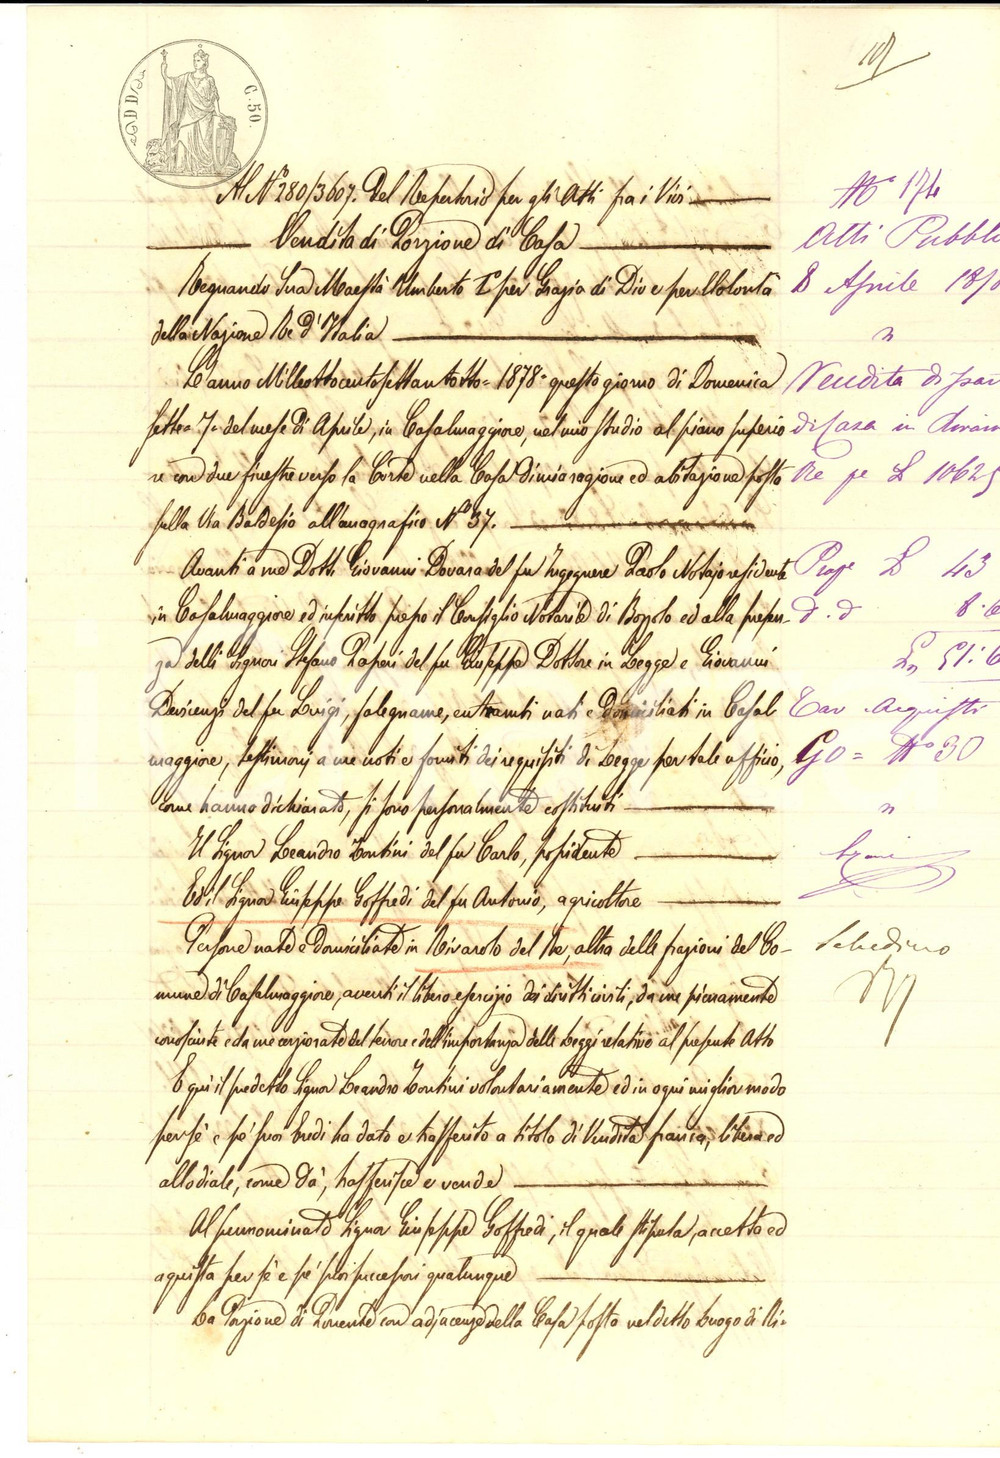 C. 50.
Al N° 280/3607. Del Repertorio per gli Atti fra i Vivi
Vendita di Porzione di Casa
Regnando Sua Maestà Umberto I° per Grazia di Dio e per Volontà
della Nazione Re d'Italia
L'anno Milleottocentosettantotto = 1878 = questo giorno di Domenica
sette = 7 = del mese di Aprile, in Casalmaggiore, nel mio studio al piano superio
re con due finestre verso la Corte nella Casa di mia ragione ed abitazione posta
sulla Via Baldesio all'anagrafico N° 37.
Avanti a me Dott. Giovanni Dovara del fu Ingegnere Paolo Notajo residente
in Casalmaggiore ed inscritto presso il Consiglio Notarile di Bozzolo ed alla presen-
za delli Signori Stefano Paperi del fu Giuseppe Dottore in Legge e Giovanni
Devicenzi del fu Luigi, falegname, entrambi nati e domiciliati in Casal
maggiore, testimonj a me noti e forniti dei requisiti di Legge per tale ufficio,
come hanno dichiarato, si sono personalmente costituiti
Il Signor Leandro Contini del fu Carlo, possidente
Ed il Signor Giuseppe Goffredi del fu Antonio, agricoltore
Persone nate e domiciliate in Rivarolo del Re, altra delle frazioni del Co-
mune di Casalmaggiore, aventi il libero esercizio dei diritti civili, da me pienamente
conosciute e da me cerziorate del tenore e dell'importanza delle Leggi relative al presente Atto
E qui il predetto Signor Leandro Contini volontariamente ed in ogni miglior modo
per sé e pé suoi Eredi ha dato e trasferito a titolo di Vendita franca, libera ed
allodiale, come dà, trasferisce e vende
Al prenominato Signor Giuseppe Goffredi, il quale stipula, accetta ed
aquista per sé e pé suoi successori qualunque
La Porzione di Ponente con adjacenze della Casa posta nel detto Luogo di Ri-
N° 174
Atti Pubbli
8 Aprile 18
Vendita di par
di Casa in
Re pe L 10625
Prop L 43
d. d 8.6
L 51:6
Tav Acquisti
90 = N° 30
Schedirno